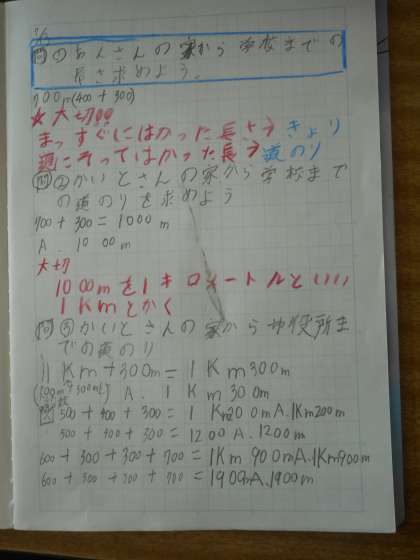 問①あんさんの家から学校までの
長さ求めよう。
700m(400+300)
★大切!!
まっすぐにはかった長さうきょり
道にそってはかった長さう道のり
問②かいとさんの家から学校まで
の道のりを求めよう
700+300=1000m
A.1000m
大切
1000mを1キロメートルといい
1Kmとかく
問③かいとさんの家から市役所ま
での道のり
1Km+300m=1Km300m
A. 1Km300m
500+400+300=1Km200mA.1Km200m
500+400+300=1200A.1200m
600+300+300+700=1Km900mA.1Km900m
600+300+300+700=1900mA.1900m